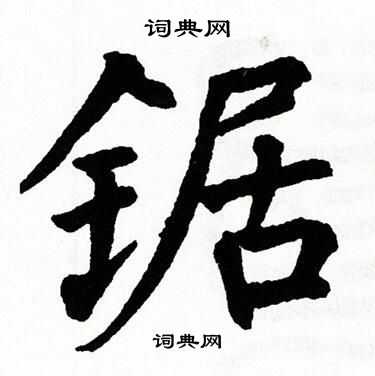 词典网
鋸
词典网